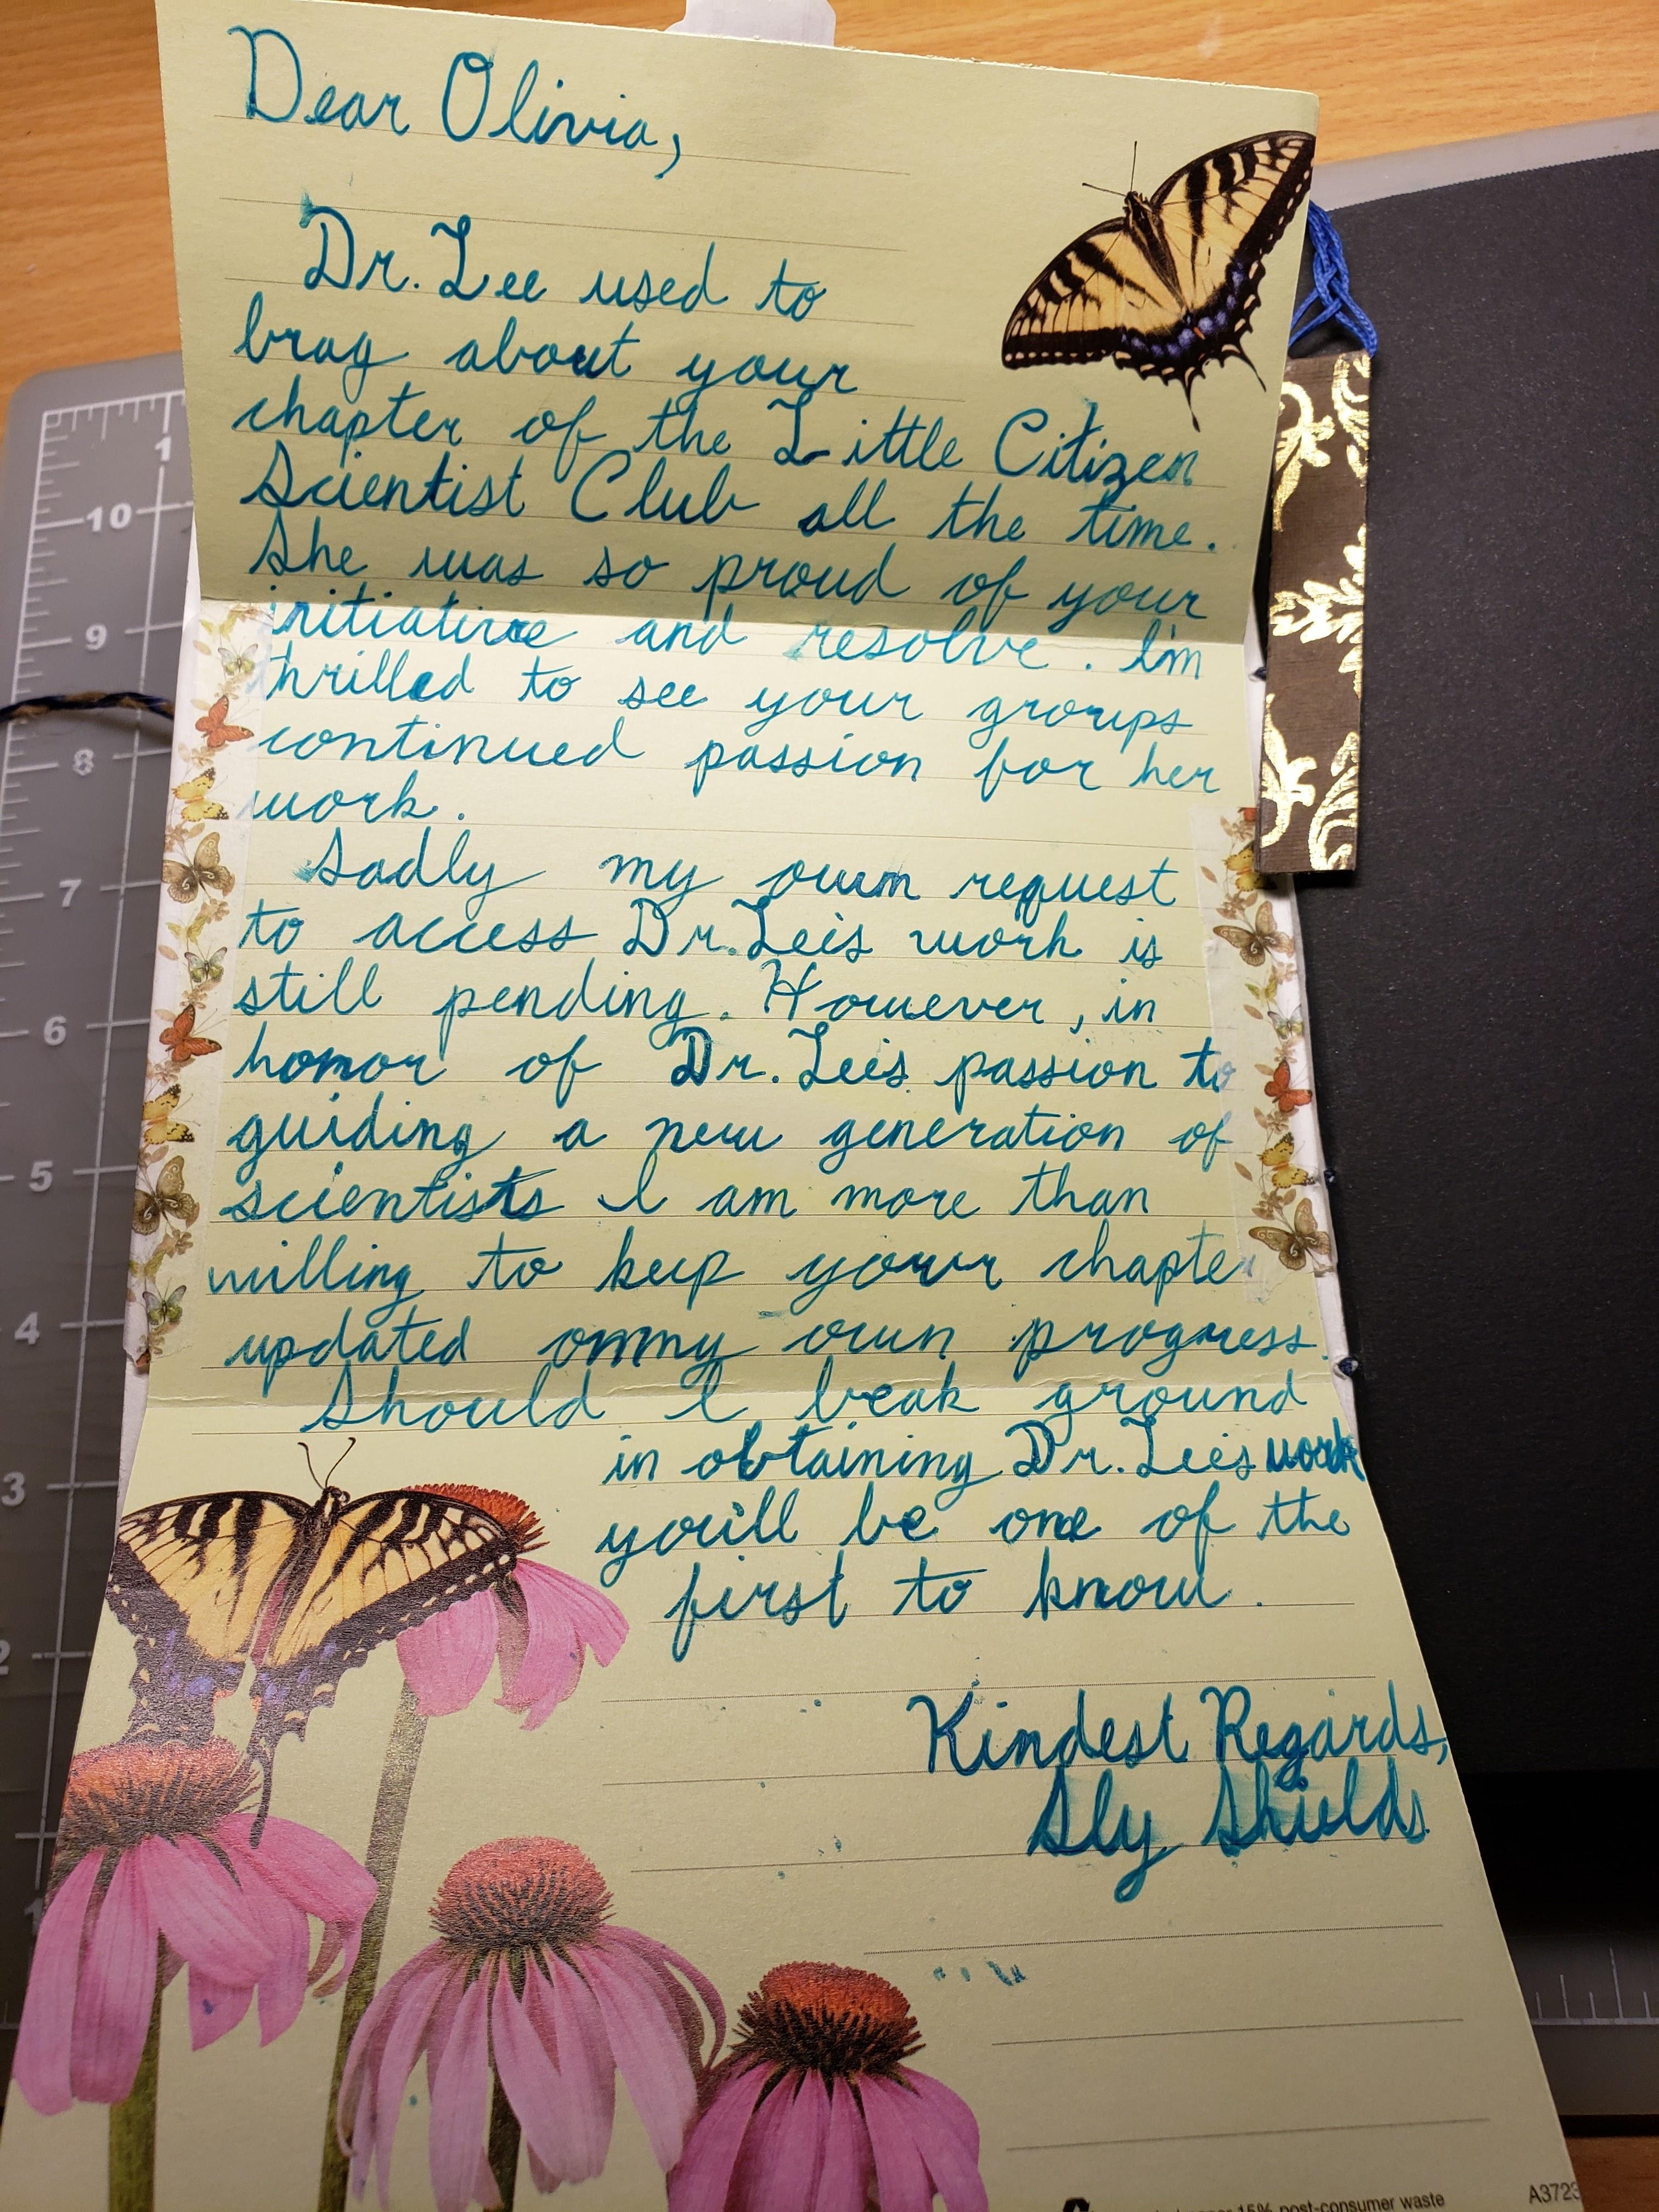 Dear Olivia,
Dr. Lee used to
brag about your
chapter of the Little Citizen
Scientist Club all the time.
She was so proud of your
initiative and resolve. I'm
thrilled to see your groups
continued passion for her
work.
Sadly my own request
to access Dr. Lee's work is
still pending. However, in
honor of Dr. Lee's passion to
guiding a new generation of
scientists I am more than
willing to keep your chapter
updated on my own progress.
Should I break ground
in obtaining Dr. Lee's work
you'll be one of the
first to know.
Kindest Regards,
Sly Shields
15% post-consumer waste
A3723
10
9
8
7
6
5
4
3
2
1
1